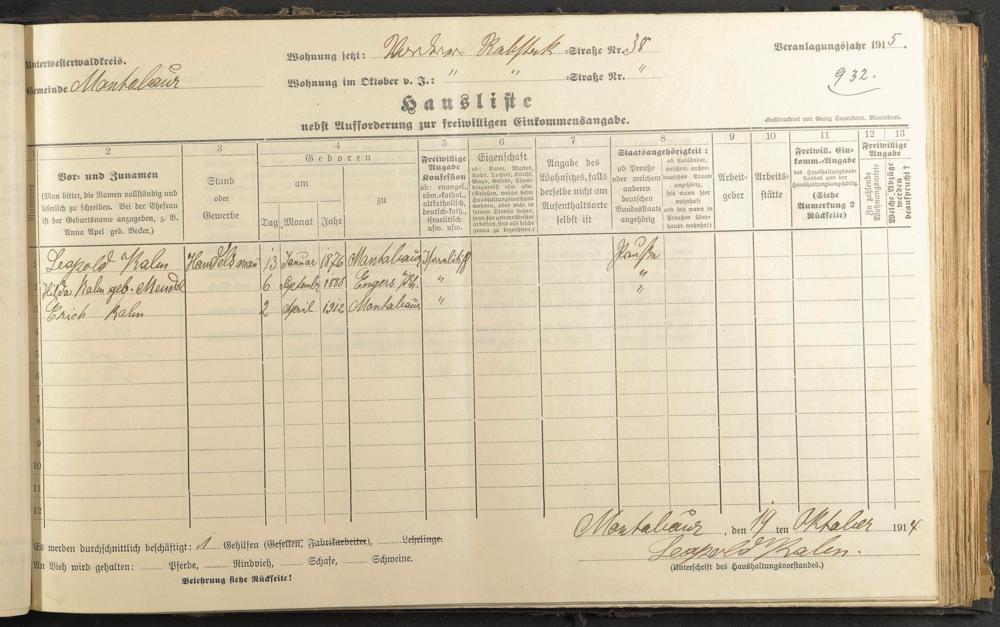 Unterwesterwaldkreis.
Gemeinde Montabaur
Wohnung jetzt: Vorderer Rebstock =Straße Nr. 38
Wohnung im Oktober v. J.: " " =Straße Nr. "
Veranlagungsjahr 1915.
932.
Hausliste
nebst Aufforderung zur freiwilligen Einkommensangabe.
Buchdruckerei von Georg Sauerborn, Montabaur.
1 2 3 4 5 6 7 8 9 10 11 12 13
Nummer
Vor- und Zunamen
(Man bittet, die Namen vollständig und
leserlich zu schreiben. Bei der Ehefrau
ist der Geburtsname anzugeben, z. B.
Anna Apel geb. Becker.)
Stand
oder
Gewerbe
Geboren
am
zu
Tag Monat Jahr
Freiwillige
Angabe
Konfession
ob: evangel.,
röm.-kathol.,
altkatholisch,
deutsch-kath.,
israelitisch
usw. usw.
Eigenschaft
Angabe des
Wohnsitzes, falls
derselbe nicht am
Aufenthaltsorte
selbst ist
Staatsangehörigkeit:
ob Preuße
oder welchem
anderen
deutschen
Bundesstaate
angehörig
ob Ausländer,
welchem außer-
deutschen Staate
angehörig,
seit wann hier
wohnhaft
und seit wann in
Preußen über-
haupt wohnhaft
Arbeit-
geber
Arbeits-
stätte
Freiwill. Ein-
komm.-Angabe
des Haushaltungsvor-
standes und der
Haushaltungsangehörig.
(Siehe
Anmerkung 2
Rückseite)
Freiwillige
Angabe
Zu zahlende
Wohnungsmiete
Welche Abzüge
werden
beansprucht?
1 Leopold Kahn Handelsmann 13 Januar 1876 Montabaur Israelitisch Preuße
2 Hilda Kahn geb. Mendel 6 Septembr 1888 Engers a/Rh. " "
3 Erich Kahn 2 April 1912 Montabaur " "
4
5
6
7
8
9
10
11
12
Montabaur, den 19 ten Oktober 1914
Es werden durchschnittlich beschäftigt: 1 Gehilfen (Gesellen, Fabrikarbeiter), Lehrlinge.
Leopold Kahn.
An Vieh wird gehalten: Pferde, Rindvieh, Schafe, Schweine.
(Unterschrift des Haushaltungsvorstandes.)
Belehrung siehe Rückseite!